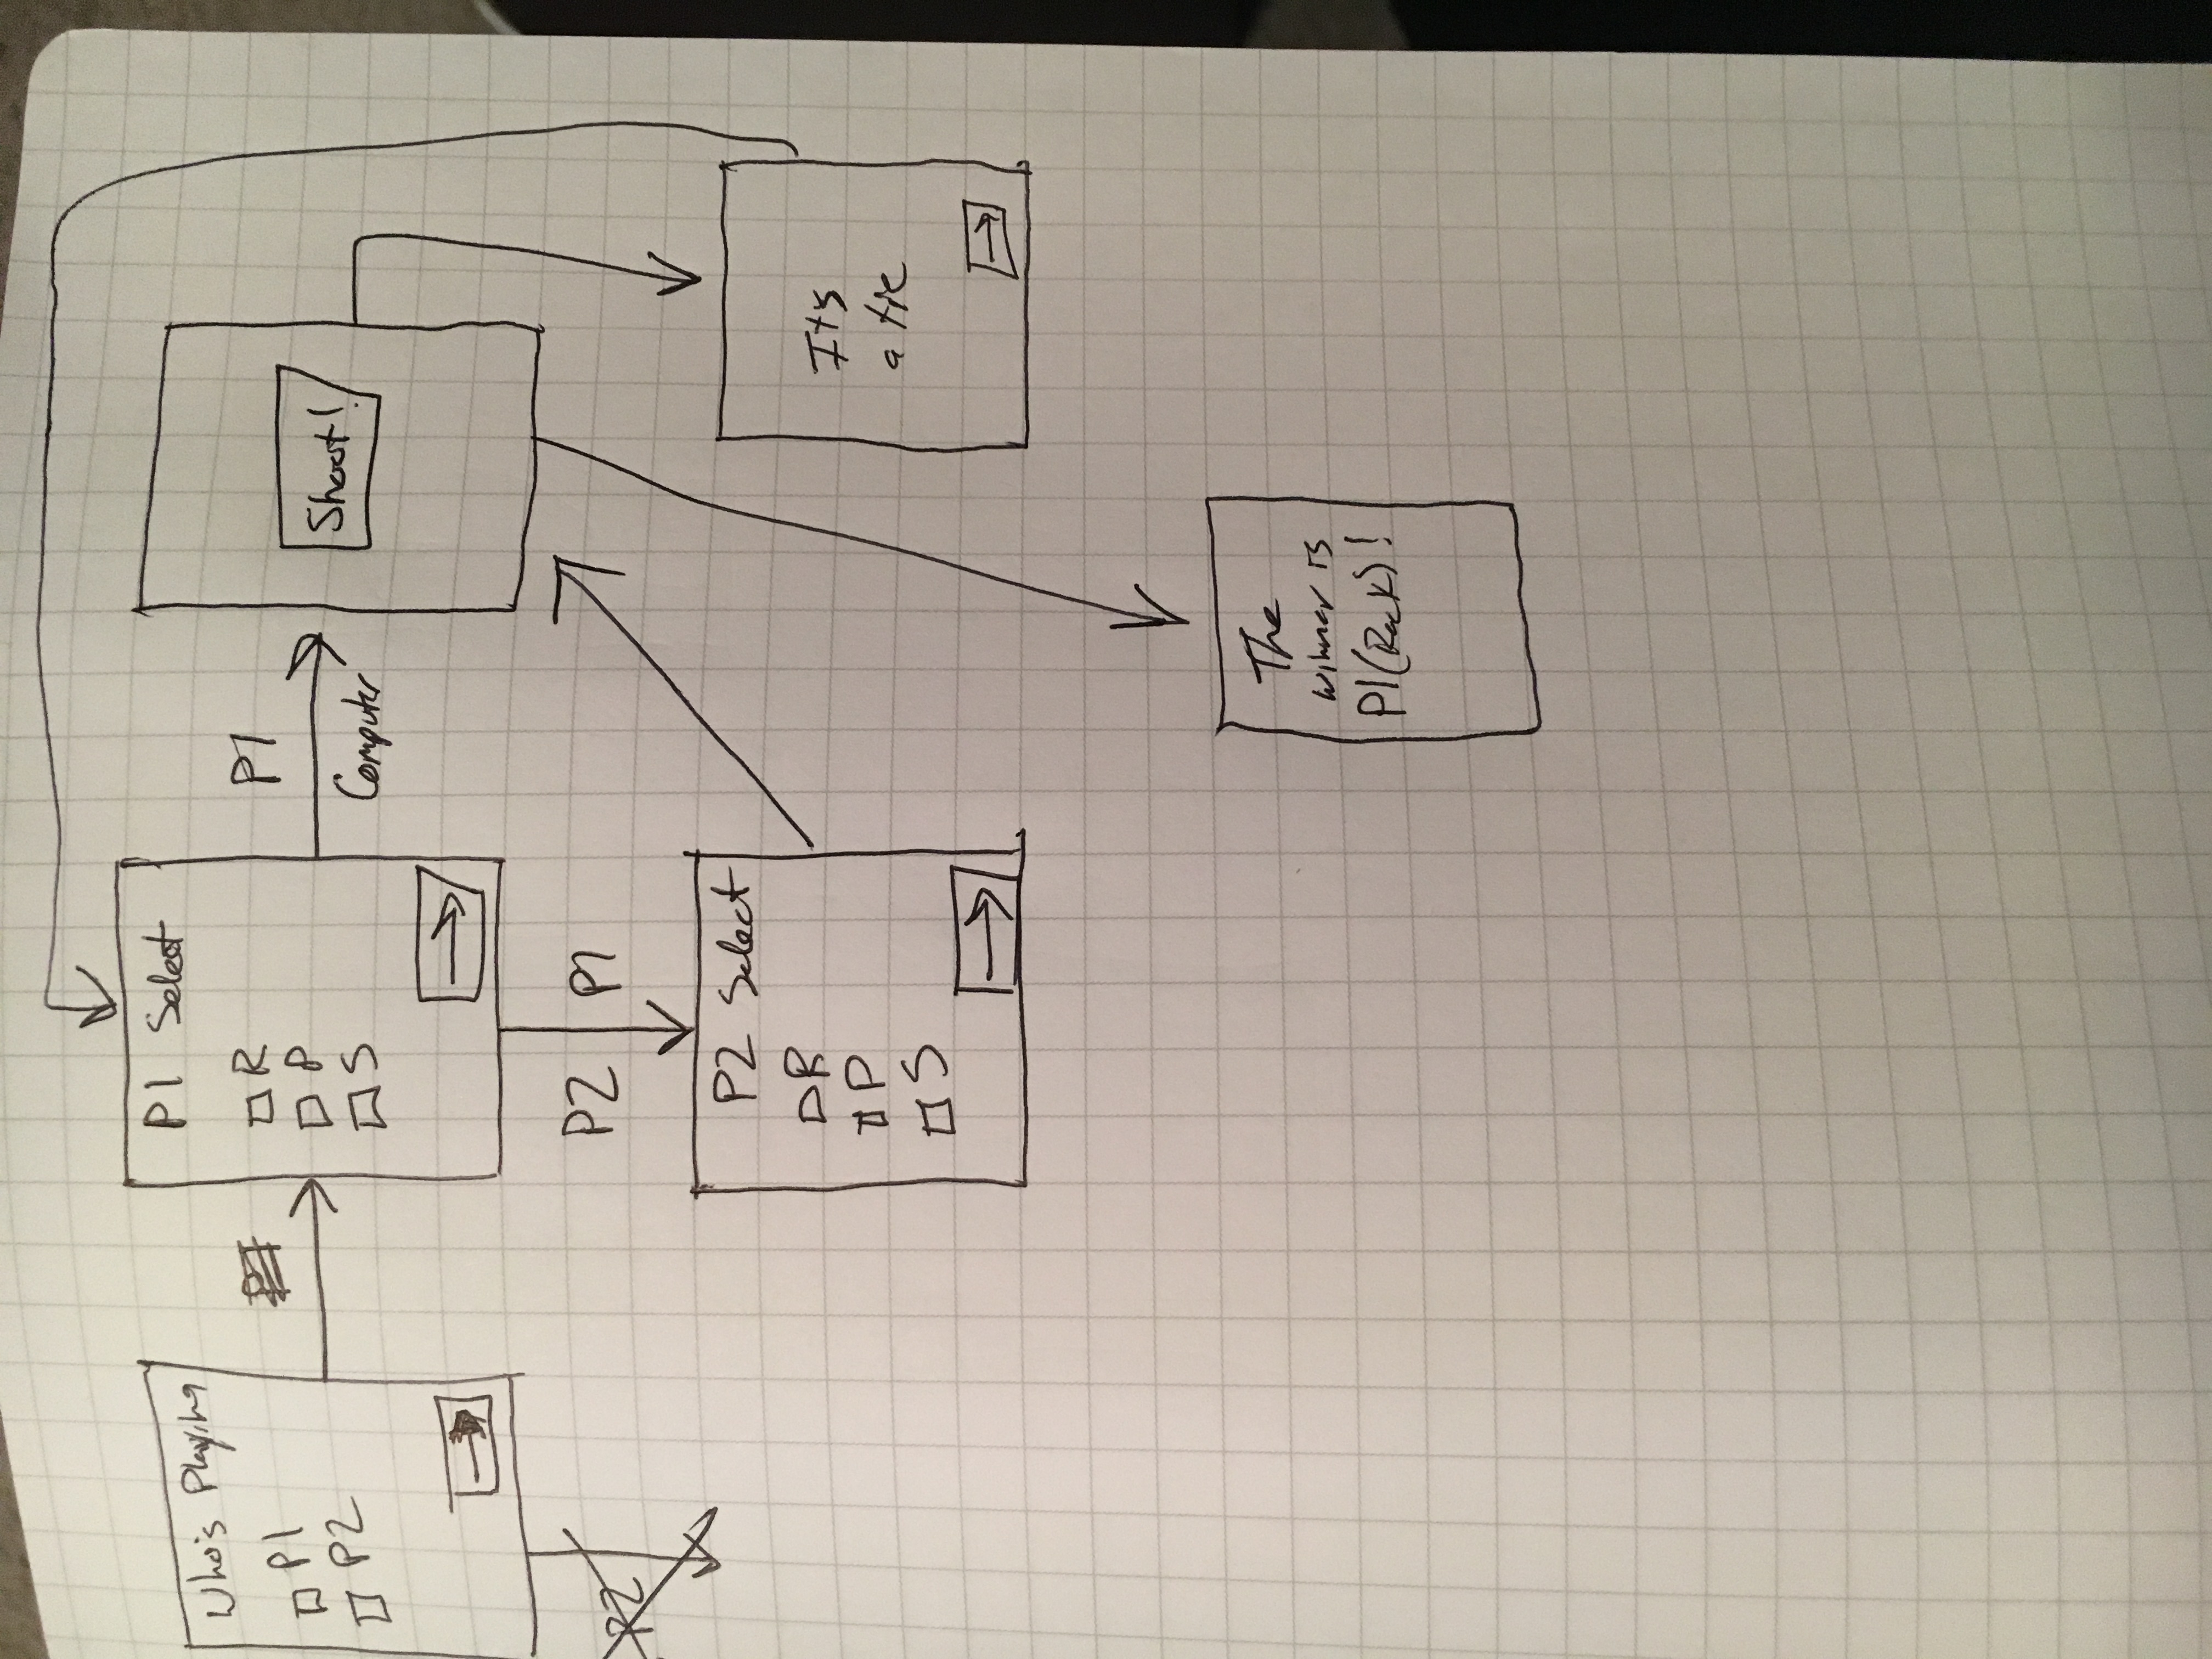 Who's Playing
P1
P2
P1 Select
R
P
S
P1
Computer
Shoot!
P2
P2 P1
P2 Select
R
P
S
Its
a tie
The
winner is
P1(Rock)!